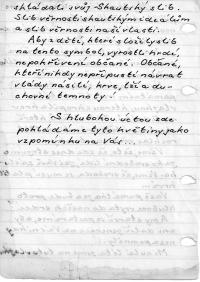 skládali svůj skautský slib.
Slib věrnosti skautským ideálům
a slib věrnosti naší vlasti.
Aby z dětí, které složily slib
na tento symbol, vyrostli hrdí,
nepokřivení občané. Občané,
kteří nikdy nepřipustí návrat
vlády násilí, krve, lži a du-
chovné temnoty!
S hlubokou úctou zde
pokládáme tyto květiny jako
vzpomínku na Vás...